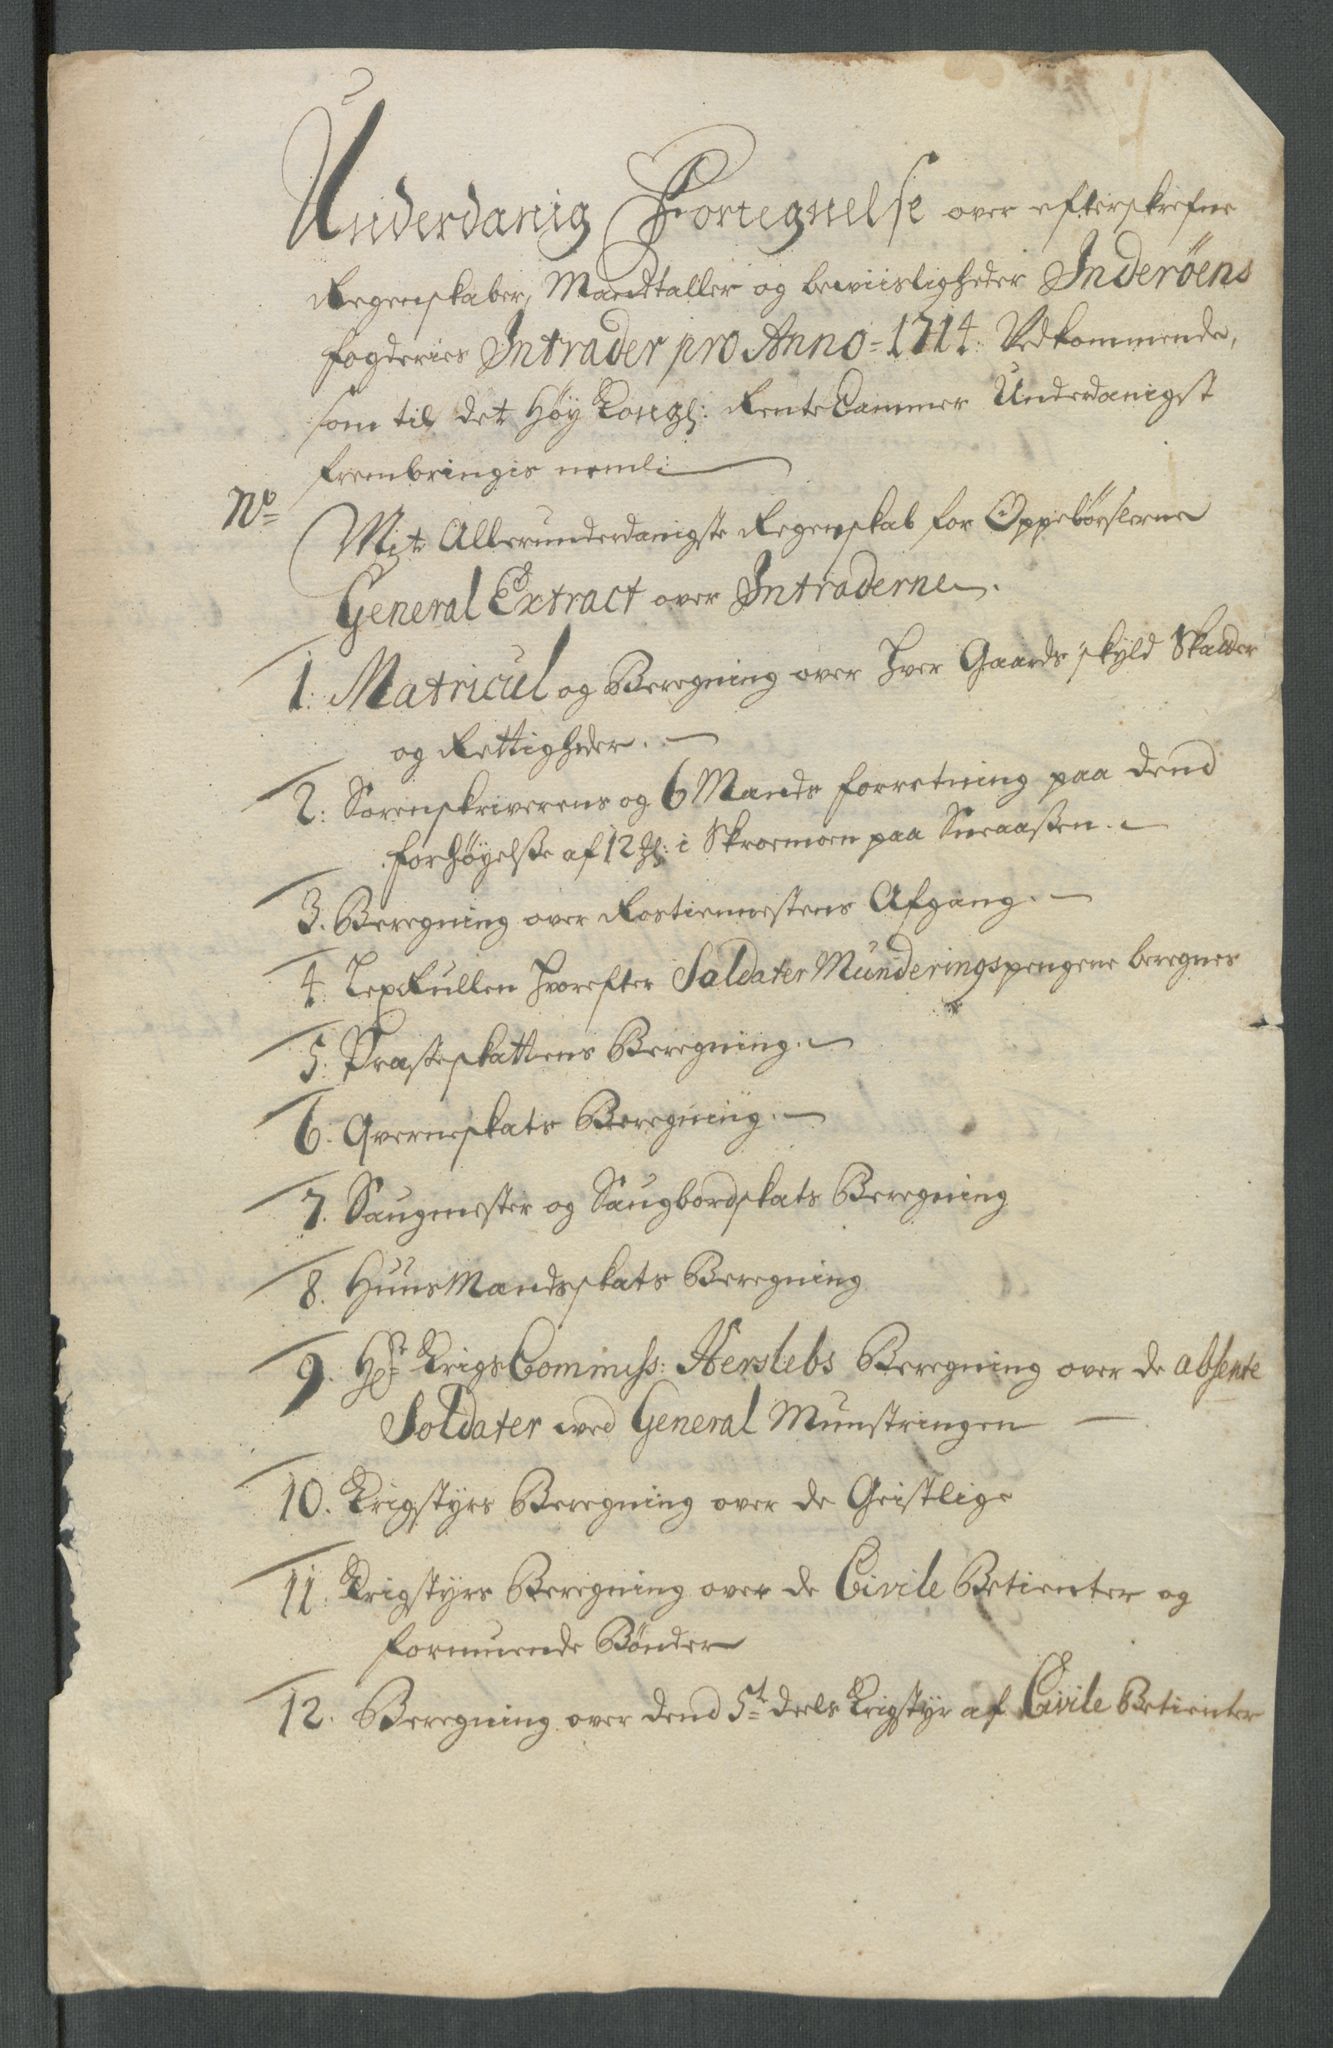 Underdanig Fortegnelse over efterskrefne
Regenskaber, Mandtaller og beviisligheder Inderøens
fogderies Intrader pro Anno = 1714. Vedkommende,
som til det Høy Kongl: RenteCammer Underdanigst
frembringis neml:
No
Mit Allerunderdanigste Regenskab for Oppebørslerne
General Extract over Intraderne.
1. Matricul og Beregning over hver Gaards skyld Skatter
og Rettigheder.
2. Sorenskriverens og 6 Mands forretning paa dend
forhøyelsse af 12 i Skroemoen paa Sneaassen.
3. Beregning over Rostienestens Afgang.
4. Lex Rullen hvorefter Soldater Munderings pengene beregnes
5. Præsteskattens Beregning.
6. Qverneskats Beregning.
7. Saugmester og Saugbordskats Beregning
8. HuusMandsskats Beregning
9. Hr KrigsCommiss: Herslebs Beregning over de absente
Soldater ved General Munstringen
10. Krigstyrs Beregning over de Geistlige
11. Krigstyrs Beregning over de Civile Betienter og
formuende Bønder
12. Beregning over dend 5te deels Krigstyr af Civile Betienter